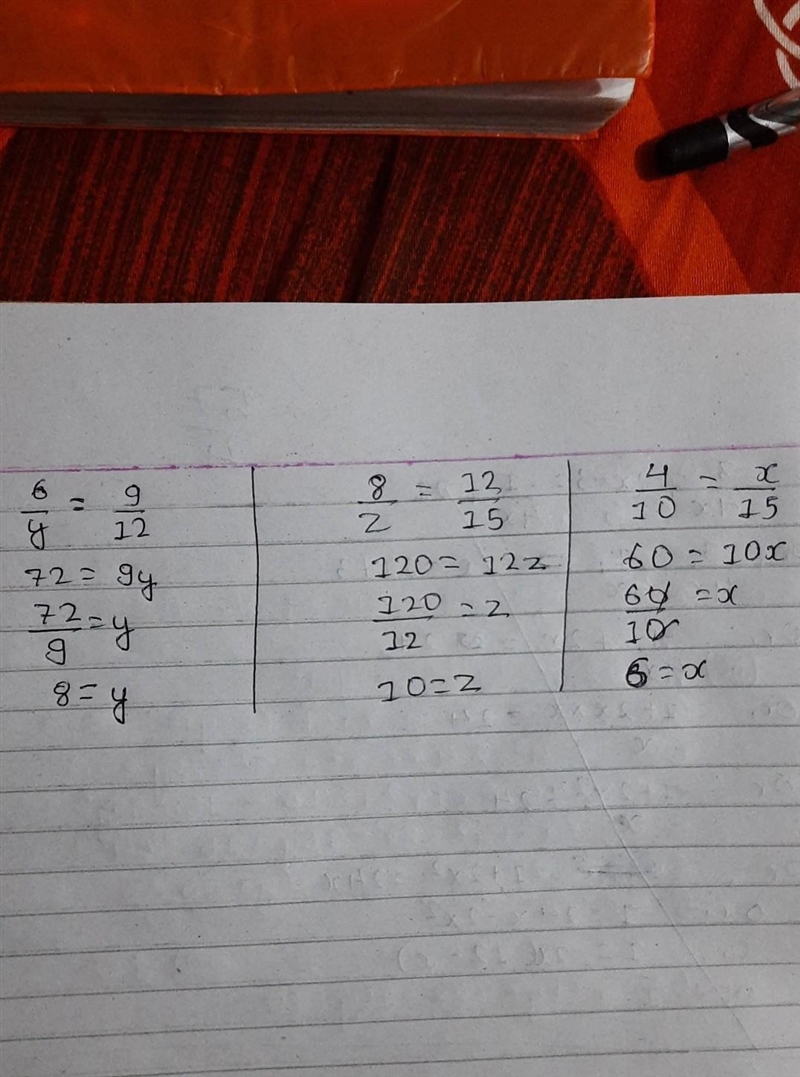 6/y = 9/12
72 = 9y
72/9 = y
8 = y
8/z = 12/15
120 = 12z
120/12 = z
10 = z
4/10 = x/15
60 = 10x
60/10 = x
6 = x